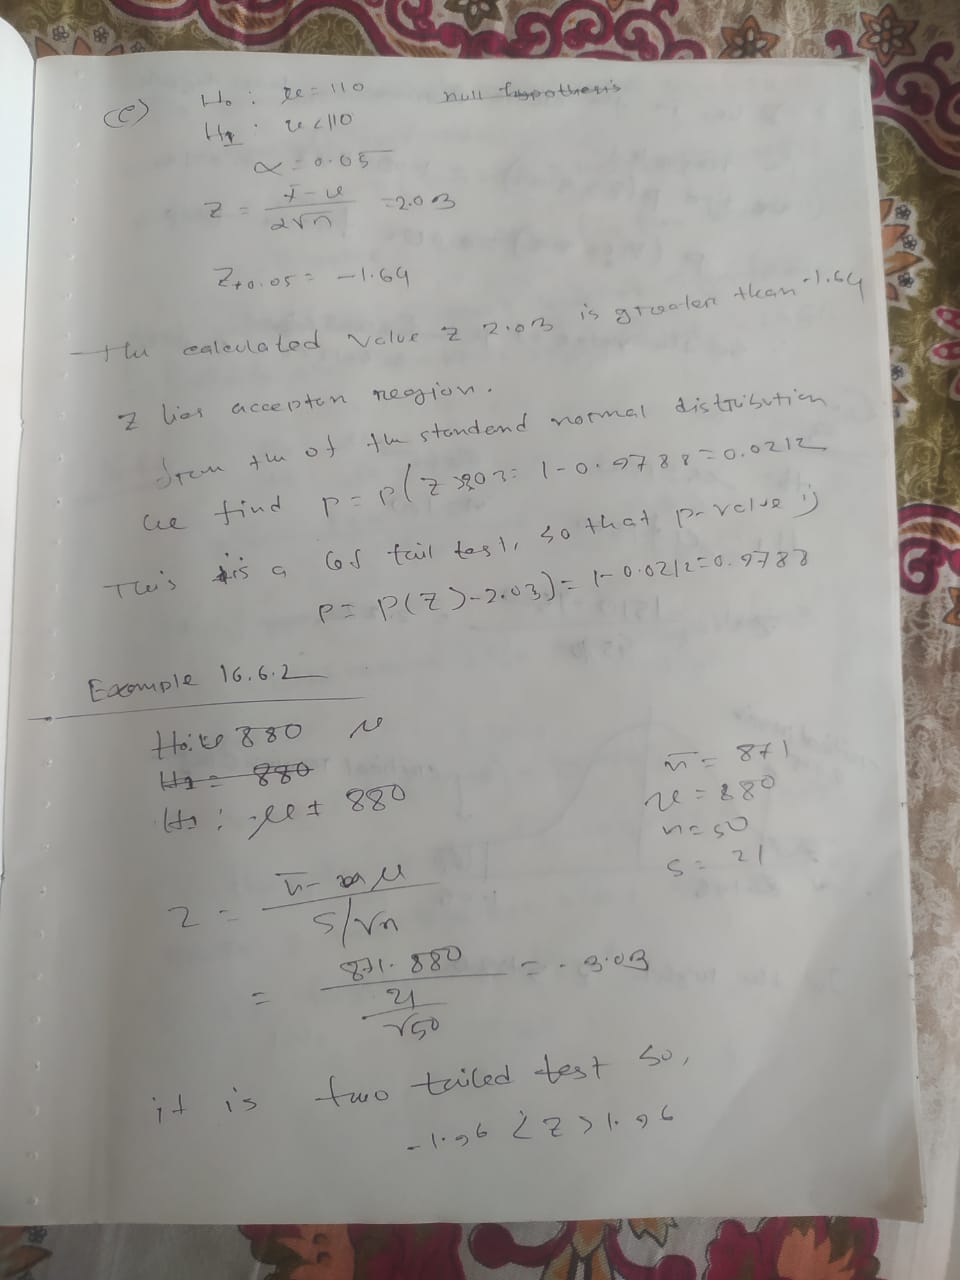 (c) H₀ : μ = 110 null hypothesis
H₁ : μ < 110
α = 0.05
Z = x̄ - μ / 2√n = 2.03
= -1.64
The calculated value z 2.03 is greater than -1.64
Z lies accepton region.
from the of the standend normal distribution
we find P = P(Z > 2.03 = 1 - 0.9788 = 0.0212
This is a left tail test, so that p-value is
P = P(Z > -2.03) = 1 - 0.0212 = 0.9788
Example 16.6.2
H₀: μ 880 μ
H₁ = 880
H₁ : μ ≠ 880
x̄ = 871
μ = 880
n = 50
s = 21
Z = x̄ - μ / S/√n
= 871 - 880 / 21/√50 = - 3.03
it is two tailed test so,
-1.96 < Z > 1.96